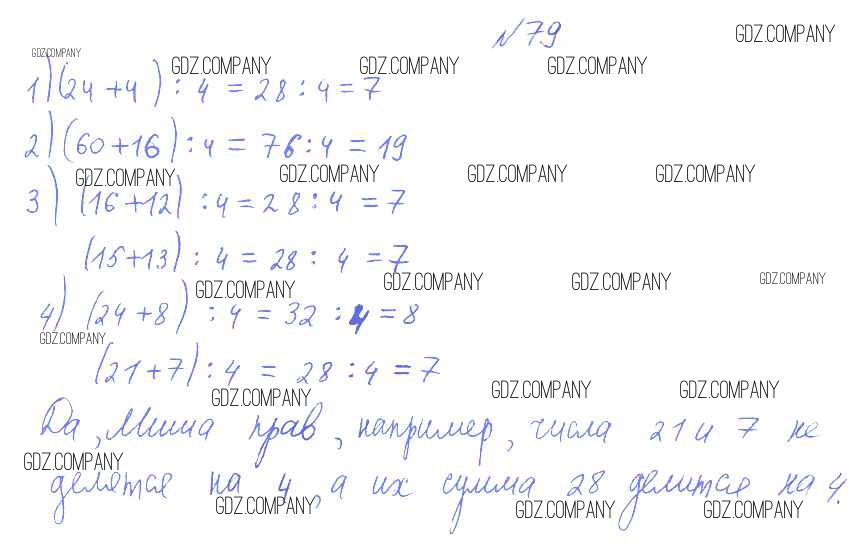 №79
GDZ.COMPANY
GDZ.COMPANY
GDZ.COMPANY GDZ.COMPANY GDZ.COMPANY
1) (24+4) : 4 = 28 : 4 = 7
2) (60+16) : 4 = 76 : 4 = 19
GDZ.COMPANY GDZ.COMPANY GDZ.COMPANY GDZ.COMPANY
3) (16+12) : 4 = 28 : 4 = 7
(15+13) : 4 = 28 : 4 = 7
GDZ.COMPANY GDZ.COMPANY GDZ.COMPANY GDZ.COMPANY
4) (24+8) : 4 = 32 : 4 = 8
GDZ.COMPANY
(21+7) : 4 = 28 : 4 = 7
GDZ.COMPANY GDZ.COMPANY GDZ.COMPANY
Да, Миша прав, например, числа 21 и 7 не
GDZ.COMPANY
делятся на 4, а их сумма 28 делится на 4.
GDZ.COMPANY GDZ.COMPANY GDZ.COMPANY